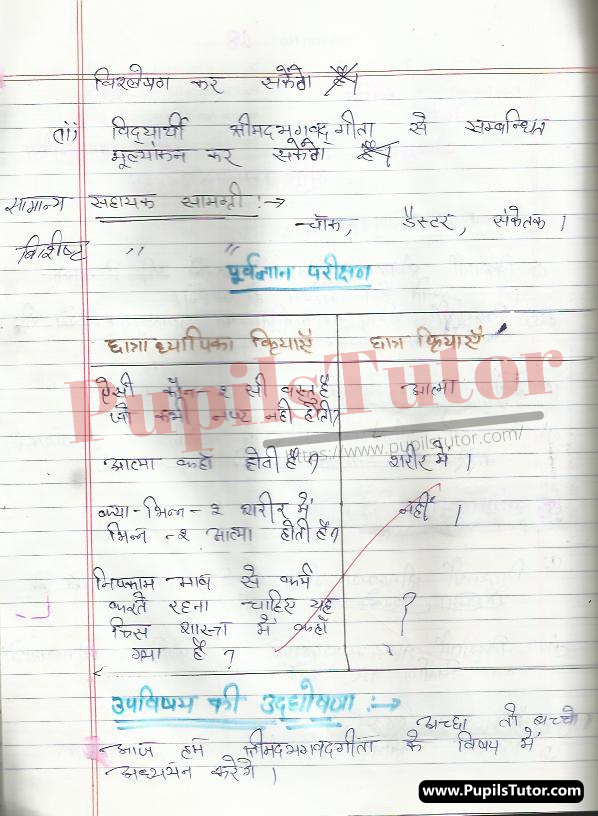 विश्लेषण कर सकेंगे हैं।
vii) विद्यार्थी श्रीमदभगवद्गीता से सम्बन्धित
मूल्यांकन कर सकेंगे हैं।
सामान्य सहायक सामग्री :→
चॉक, डैस्टर, संकेतक।
विशिष्ट " "
पूर्वज्ञान परीक्षण
छात्राध्यापिका क्रियाएँ छात्र क्रियाएँ
ऐसी कौन २ सी वस्तु है आत्मा
जो कभी नष्ट नही होती?
आत्मा कहाँ होती है? शरीर में।
क्या भिन्न-२ शरीर में नहीं।
भिन्न-२ आत्मा होती है?
निष्काम भाव से कर्म
करते रहना चाहिए यह
किस शास्त्र में कहाँ ?
गया है?
उपविषय की उद्घोषणा :→
अच्छा तो बच्चों
आज हम श्रीमदभगवद्गीता के विषय में
अध्ययन करेंगे।
PupilsTutor
https://www.pupilstutor.com/
www.PupilsTutor.com